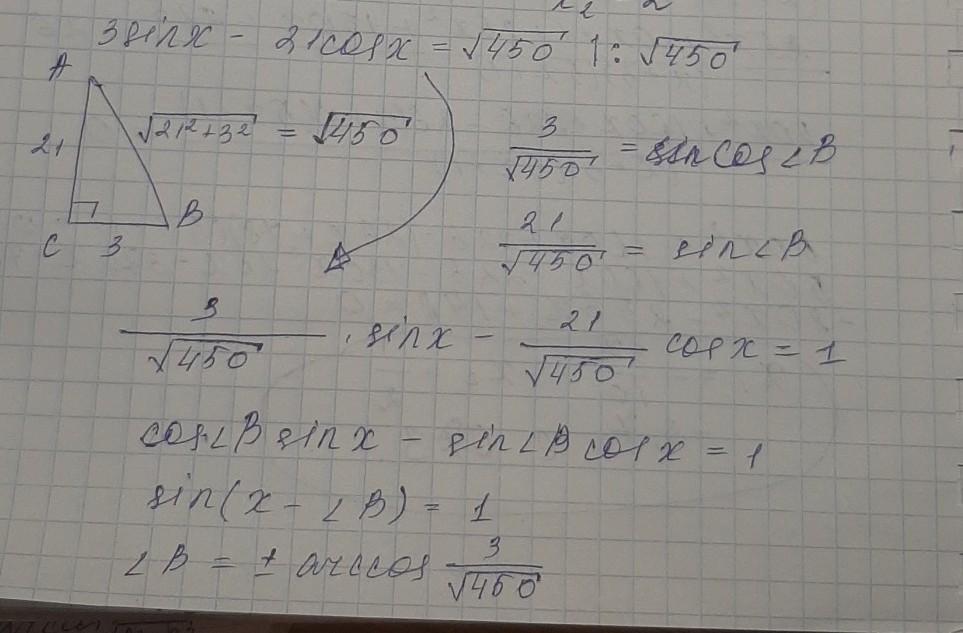 3sinx - 21cosx = √450 |: √450
A
21
√21²+3² = √450
C 3 B
3/√450 = cos∠B
21/√450 = sin∠B
3/√450 · sinx - 21/√450 cosx = 1
cos∠B sinx - sin∠B cosx = 1
sin(x - ∠B) = 1
∠B = ± arccos 3/√450